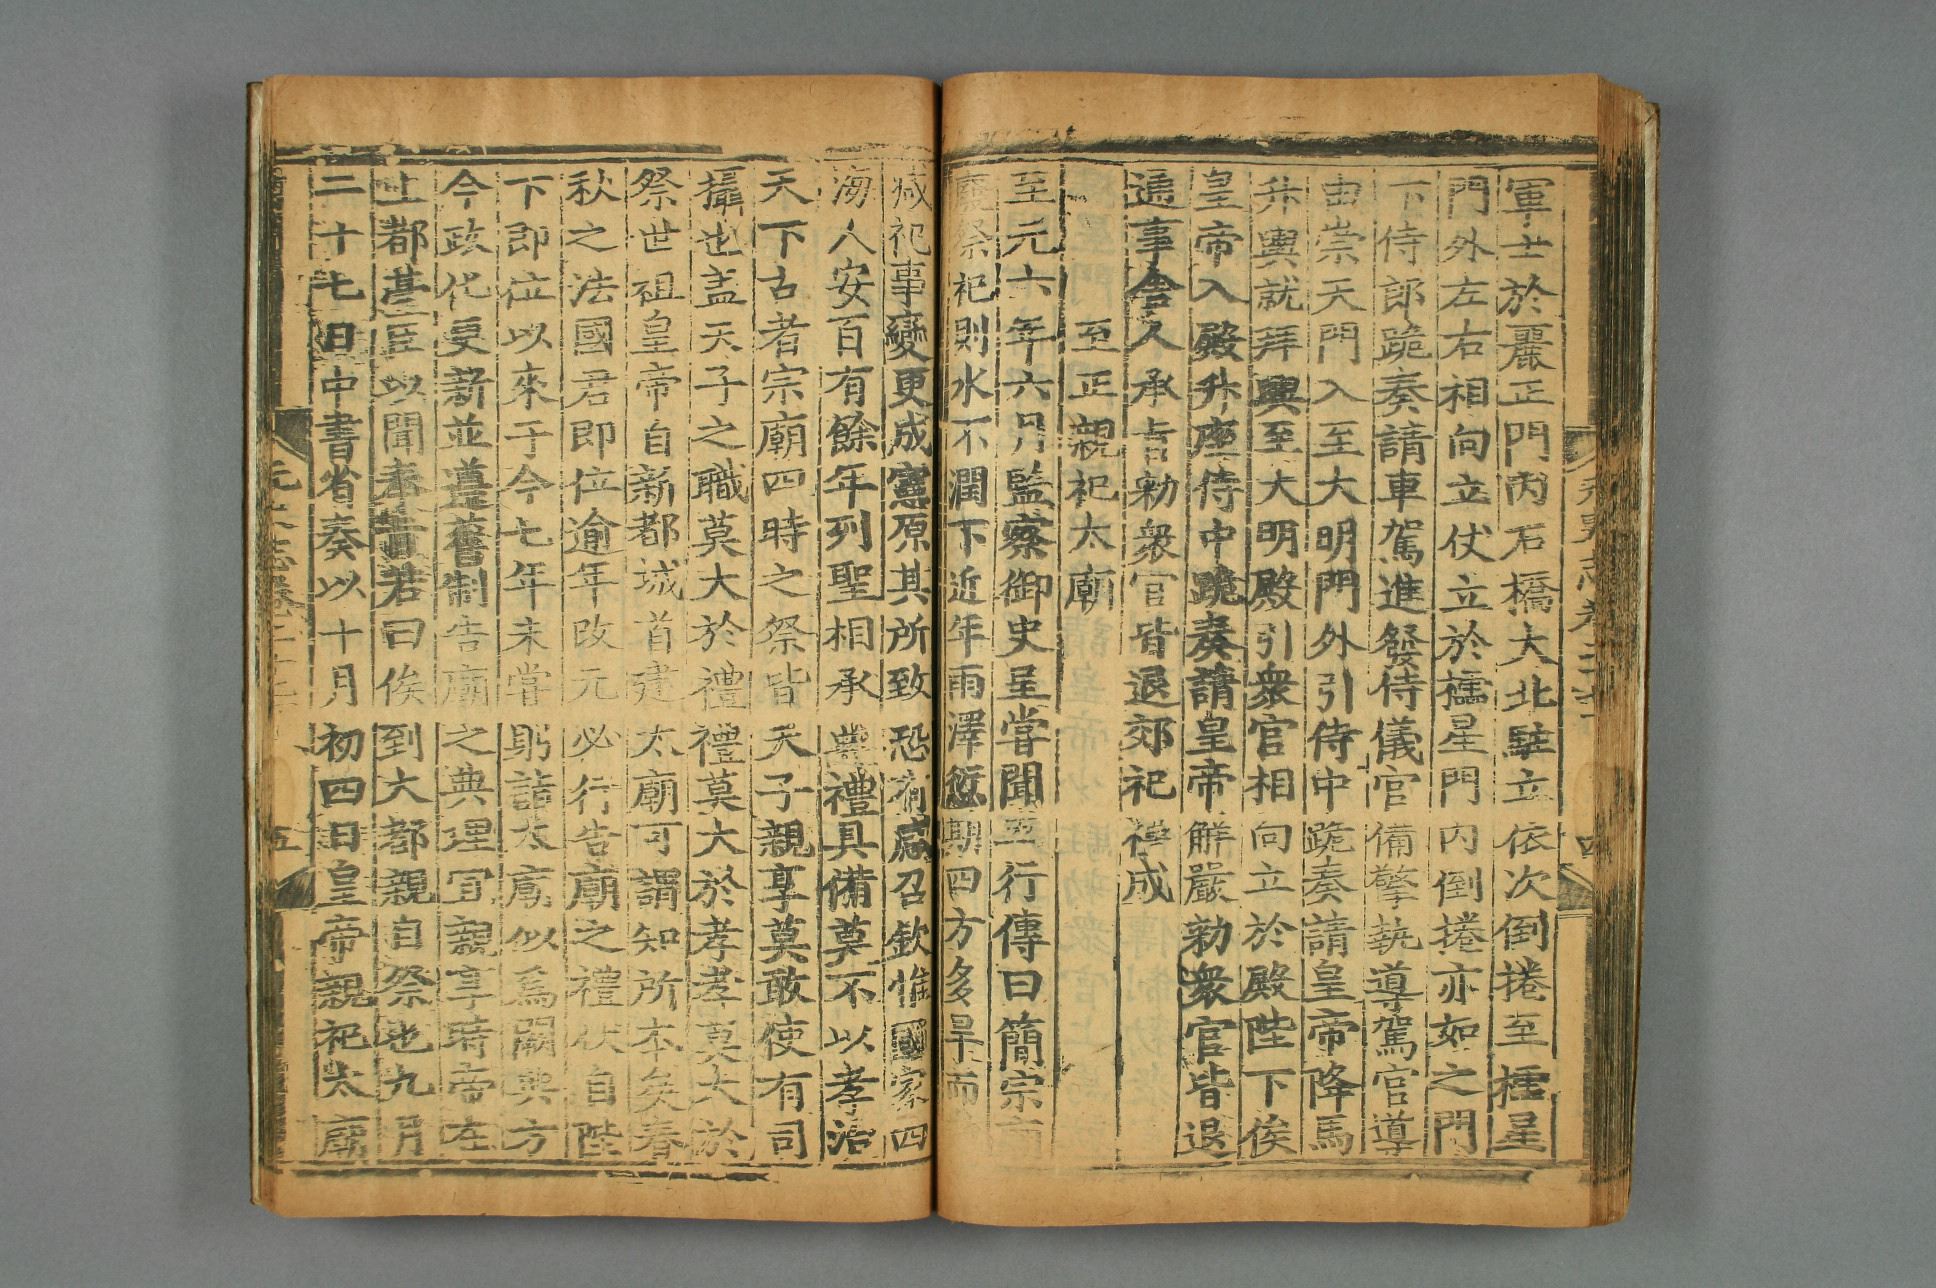 軍士於麗正門內石橋大北駐立依次倒捲至櫺星
門外左右相向立仗立於櫺星門內倒捲亦如之門
下侍郎跪奏請車駕進發侍儀官備擎執導駕官導
由崇天門入至大明門外引侍中跪奏請皇帝降馬
升輿就拜興至大明殿引衆官相向立於殿陛下俟
皇帝入殿升座侍中跪奏請皇帝解嚴勑衆官皆退
通事舍人承旨勑衆官皆退郊祀禮成
至正親祀太廟
至元六年六月監察御史呈嘗聞五行傳曰簡宗廟
廢祭祀則水不潤下近年雨澤愆期四方多旱而
歲祀事變更成憲原其所致恐有感召欽惟國家四
海人安百有餘年列聖相承典禮具備莫不以孝治
天下古者宗廟四時之祭皆天子親享莫敢使有司
攝也盖天子之職莫大於禮禮莫大於孝孝莫大於
祭世祖皇帝自新都城首建太廟可謂知所本矣春
秋之法國君即位逾年改元必行告廟之禮伏自陛
下即位以來于今七年未嘗躬詣太廟似爲闕典方
今政化更新並遵舊制告廟之典理宜親享時帝在
上都臺臣以聞奉旨若曰俟到大都親自祭也九月
二十七日中書省奏以十月初四日皇帝親祀太廟
五